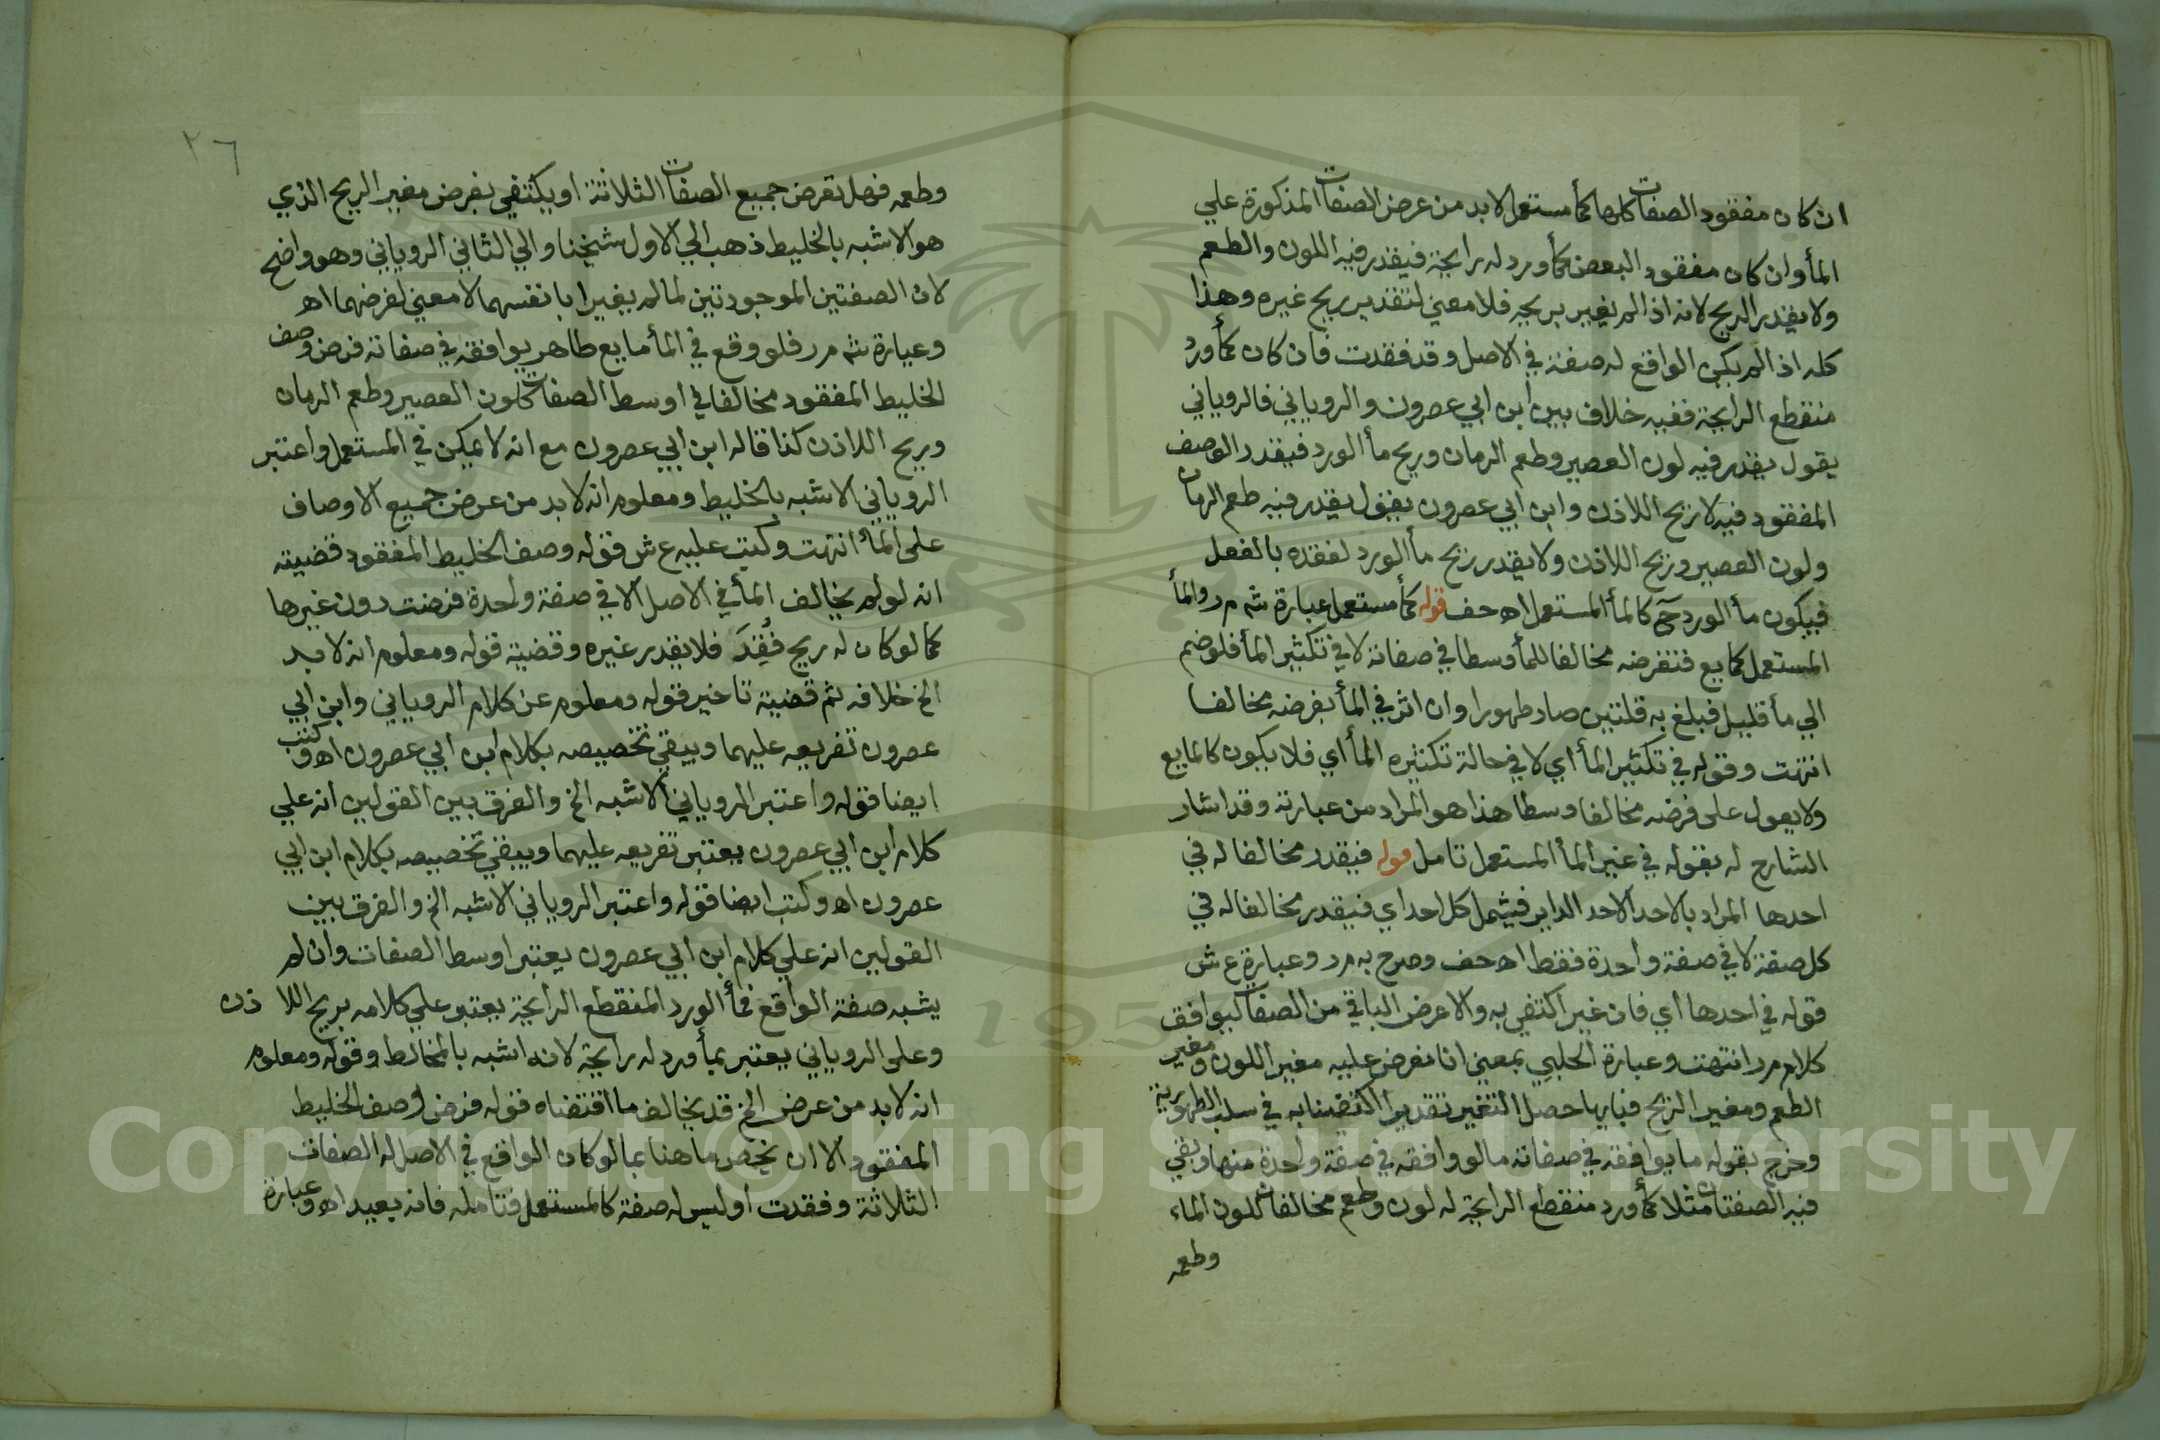 ان كان مفقود الصفات كلها كمأ مستعمل لابد من عرض الصفات المذكورة علي
المأ وان كان مفقود البعض كمأ ورد له رايحة فيقدر فيه اللون والطعم
ولا يقدر الريح لانه اذا لم يغير بريحه فلا معني لتقدير ريح غيره وهذا
كله اذا لم يكن الواقع له صفة في الاصل وقد فقدت فان كان كمأ ورد
منقطع الرايحة ففيه خلاف بين ابن ابي عصرون والروياني فالروياني
يقول يقدر فيه لون العصير وطعم الرمان وريح مأ الورد فيقدر الوصف
المفقود فيه لا ريح اللاذن وابن ابي عصرون يقول يقدر فيه طعم الرمان
ولون العصير وريح اللاذن ولا يقدر ريح مأ الورد لفقده بالفعل
فيكون مأ الورد ح كالمأ المستعمل اه حف قوله كمأ مستعمل عبارة شم ر والمأ
المستعمل كمايع فنفرضه مخالفا للمأ وسطا في صفاته لا في تكثير المأ فلو ضم
الي مأ قليل فبلغ به قلتين صار طهورا وان اثر في المأ بفرضه مخالفا
انتهت وقوله في تكثير المأ اي لا في حالة تكثيره المأ اي فلا يكون كالمايع
ولا يعول على فرضه مخالفا وسطا هذا هو المراد من عبارته وقد اشار
الشارح له بقوله في غير المأ المستعمل تامل قوله فيقدر مخالفا له في
احدها المراد بالاحد الاحد الداير فيشمل كل احد اي فيقدر مخالفا له في
كل صفة لا في صفة واحدة فقط اه حف وصرح به مر وعبارة ع ش
قوله في احدها اي فان غير اكتفي به والا عرض الباقي من الصفات ليوافق
كلام مر انتهت وعبارة الحلبي بمعني انا نعرض عليه مغير اللون ومغير
الطعم ومغير الريح فبايها حصل التغير تقديرا اكتفينا به في سلب الطهورية
وخرج بقوله ما يوافقه في صفاته ما لو وافقه في صفة واحدة منها وبقي
فيه الصفتان مثلا كمأ ورد منقطع الرايحة له لون وطعم مخالفان للون الماء
وطعمه
٢٦
وطعمه فهل تعرض جميع الصفات الثلاثة او يكتفي بفرض مغير الريح الذي
هو الاشبه بالخليط ذهب الي الاول شيخنا والي الثاني الروياني وهو واضح
لان الصفتين الموجودتين لما لم يغيرا بانفسهما لا معني لفرضهما اه
وعبارة شم ر فلو وقع في المأ مايع طاهر يوافقه في صفاته فرض وصف
الخليط المفقود مخالفا في اوسط الصفات كلون العصير وطعم الرمان
وريح اللاذن كذا قاله ابن ابي عصرون مع انه لا يمكن في المستعمل واعتبر
الروياني الاشبه بالخليط ومعلوم انه لا بد من عرض جميع الاوصاف
على المأ انتهت وكتب عليه ع ش قوله وصف الخليط المفقود قضيته
انه لو لم يخالف المأ في الاصل الا في صفة واحدة فرضت دون غيرها
كما لو كان له ريح فُقِدَ فلا يقدر غيره وقضية قوله ومعلوم انه لا بد
الخ خلافه ثم قضية تاخير قوله ومعلوم عن كلام الروياني وابن ابي
عصرون تفريعه عليهما وينبغي تخصيصه بكلام ابن ابي عصرون اه وكتب
ايضا قوله واعتبر الروياني الاشبه الخ والفرق بين القولين انه علي
كلام ابن ابي عصرون يعتبر تفريعه عليهما وينبغي تخصيصه بكلام ابن ابي
عصرون اه وكتب ايضا قوله واعتبر الروياني الاشبه الخ والفرق بين
القولين انه علي كلام ابن ابي عصرون يعتبر اوسط الصفات وان لم
يشبه صفة الواقع فمأ الورد المنقطع الرايحة يعتبر علي كلامه بريح اللا ذن
وعلى الروياني يعتبر بمأ ورد له رايحة لانه اشبه بالمخالط وقوله ومعلوم
انه لا بد من عرض الخ قد يخالف ما اقتضاه قوله فرض وصف الخليط
المفقود الا ان يخص ما هنا بما لو كان الواقع في الاصل له الصفات
الثلاثة وفقدت او ليس له صفة كالمستعمل فتامله فانه بعيد اه وعبارة
Copyright © King Saud University
195